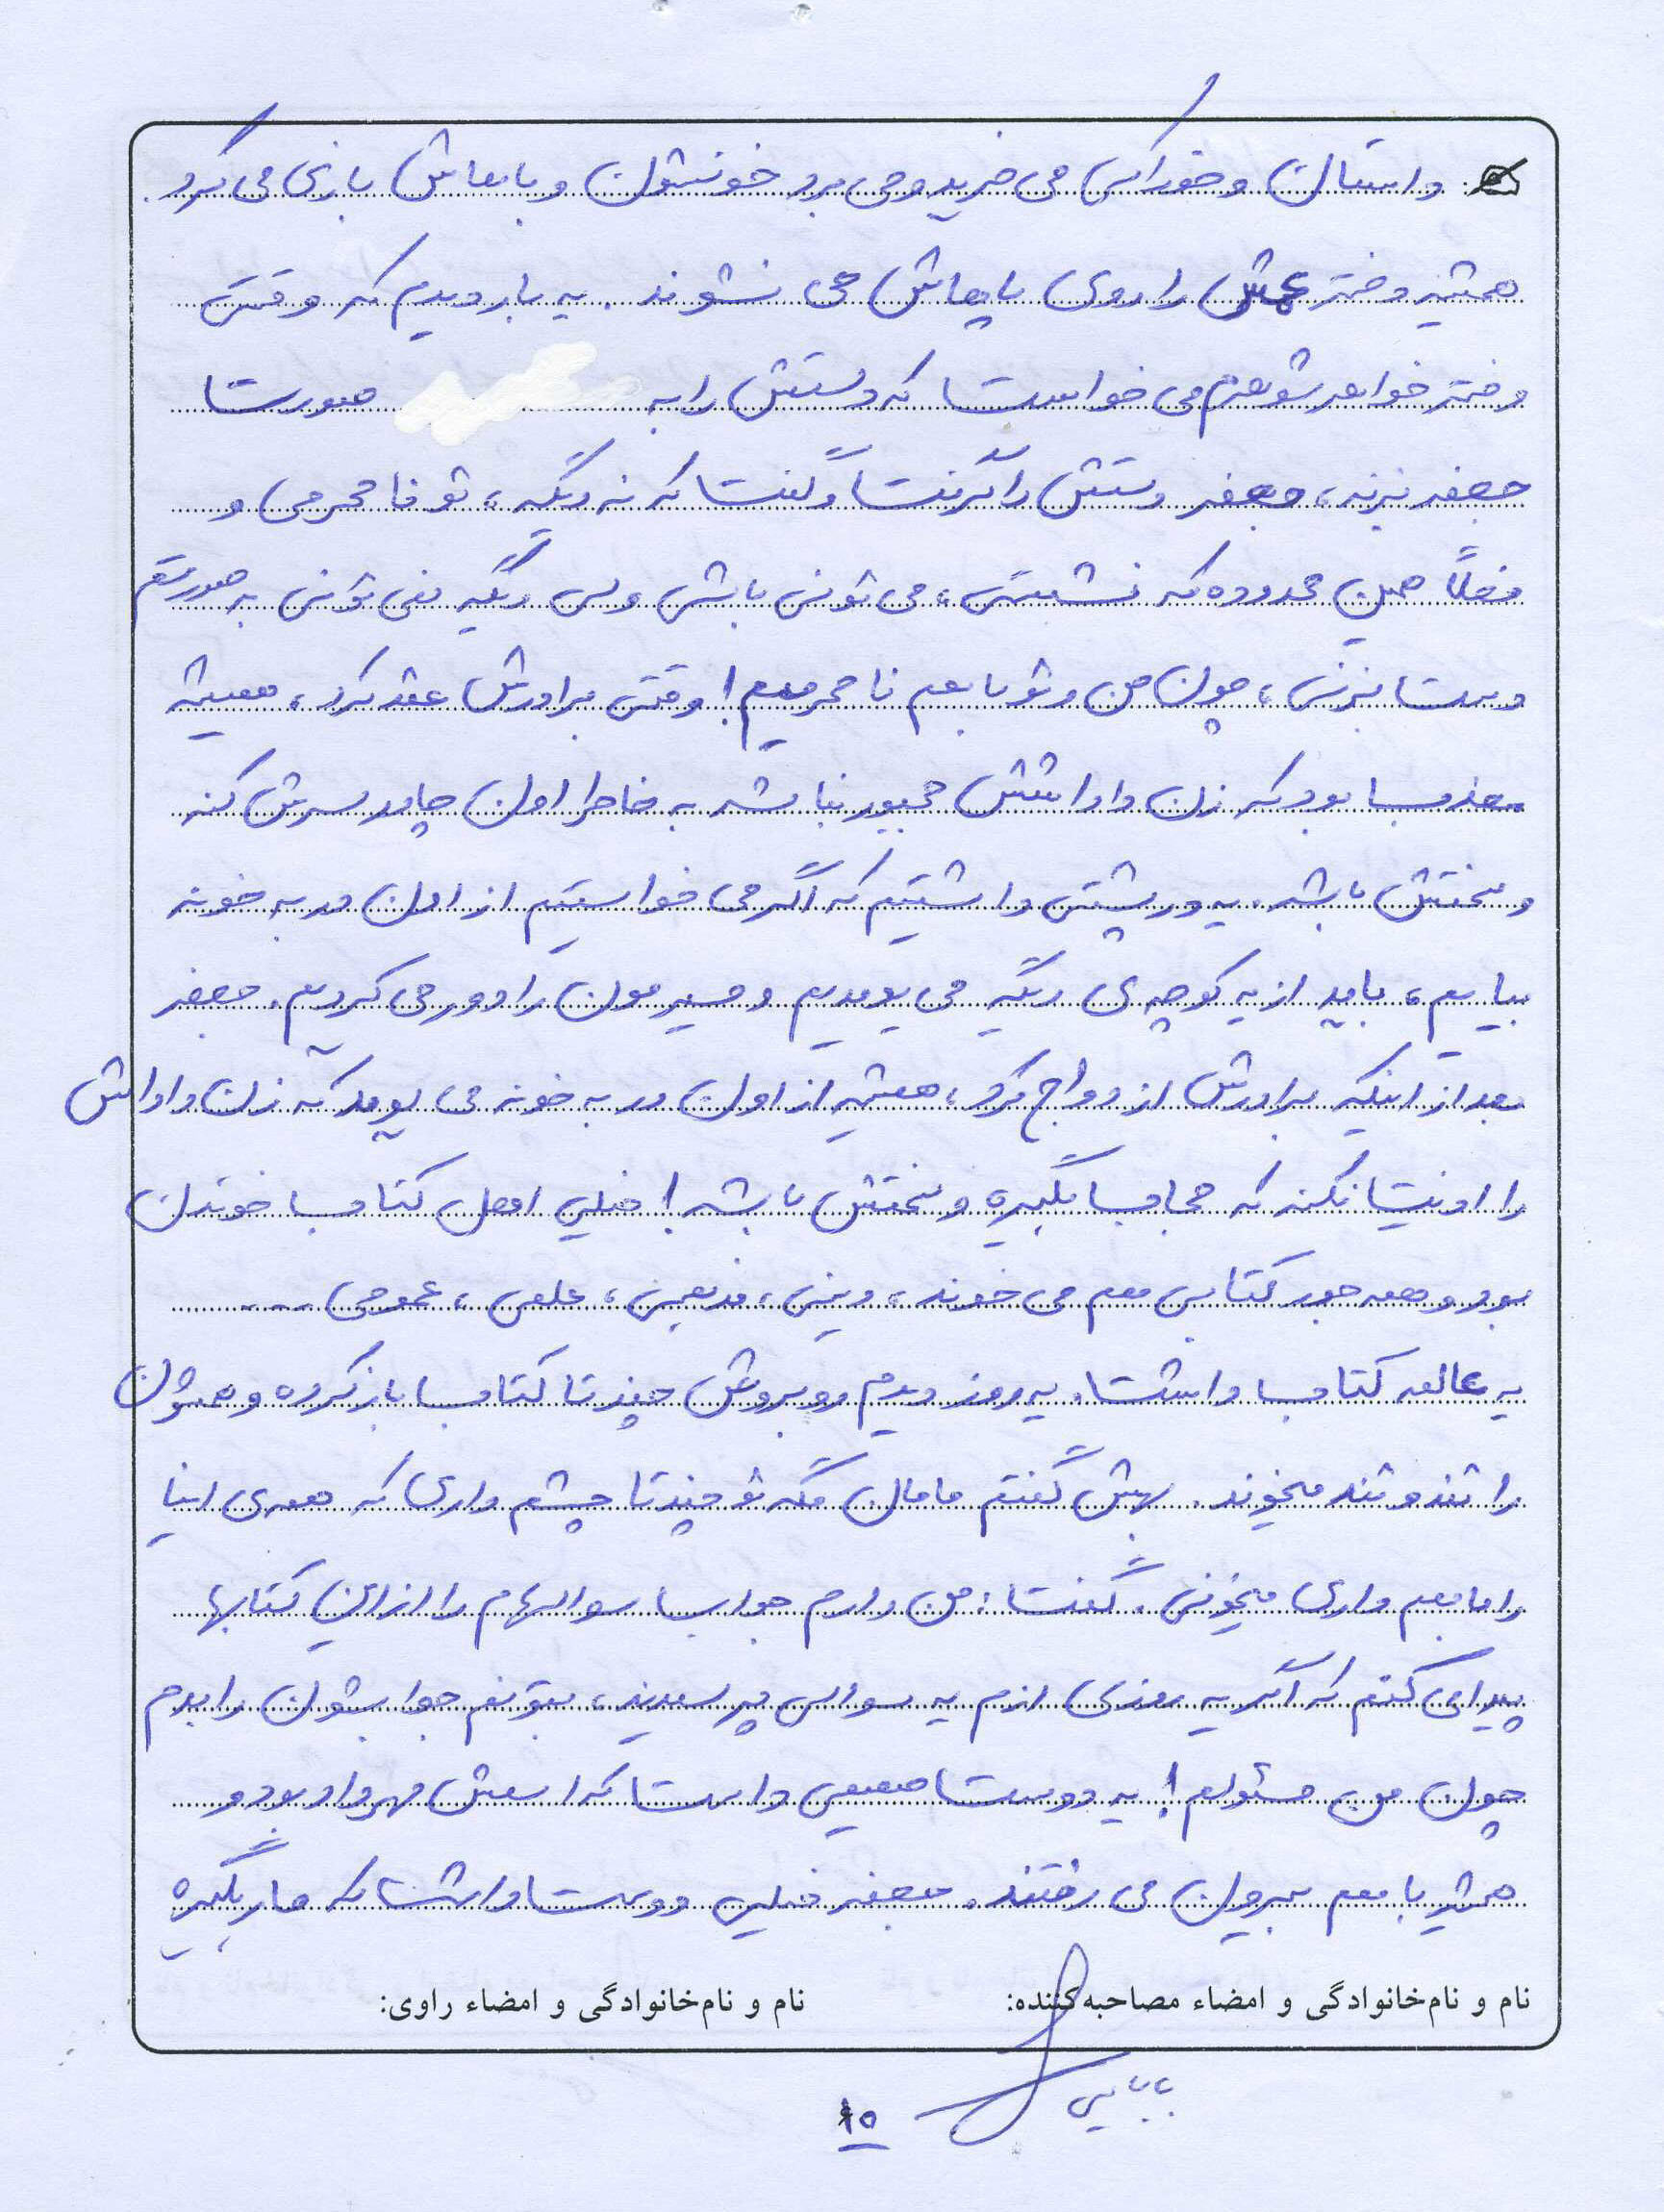 داستان و خوراکی می خرید و می برد خونشون و باهاش بازی می کرد.
همیشه دختر عمش را روی پاهاش می نشوند. یه بار دیدم که وقتی
دختر خواهر شوهرم می خواست که دستش را به صورت
جعفر بزنه، جعفر دستش را گرفت و گفت که نه دیگه، تو نا محرمی و
فعلاً همین محدوده که نشستی، می تونی باشی ولی دیگه نمی تونی به صورتم
دست بزنی، چون من و تو با هم نا محرمیم! وقتی برادرش عقد کرد، همیشه
معذب بود که زن داداشش مجبور نباشه به خاطر اون چادر سرش کنه
و سختش باشه. یه در پشتی داشتیم که اگر می خواستیم از اون در به خونه
بیایم، باید از یه کوچه ی دیگه می یومدیم و مسیرمون را دور می کردیم. جعفر
بعد از اینکه برادرش ازدواج کرد، همیشه از اون در به خونه می یومد که زن داداش
را اذیت نکنه که حجاب بگیره و سختش باشه! خیلی اهل کتاب خوندن
بود و همه جور کتابی هم می خوند، دینی، مذهبی، علمی، عمومی ....
یه عالمه کتاب داشت. یه روز دیدم روبروش چند تا کتاب باز کرده و همشون
را تند و تند میخوند. بهش گفتم مامان مگه تو چند تا چشم داری که همه ی اینا
را با هم داری میخونی. گفت: من دارم جواب سوالهام را از این کتابها
پیدا می کنم که اگر یه روزی ازم یه سوالی پرسیدند، بتونم جوابشون را بدم
چون من مسئولم! یه دوست صمیمی داشت که اسمش مهرداد بود و
همیشه با هم بیرون می رفتند. جعفر خیلی دوست داشت که مار بگیره
نام و نام‌خانوادگی و امضاء مصاحبه‌کننده:
نام و نام‌خانوادگی و امضاء راوی:
بابایی
۱۵